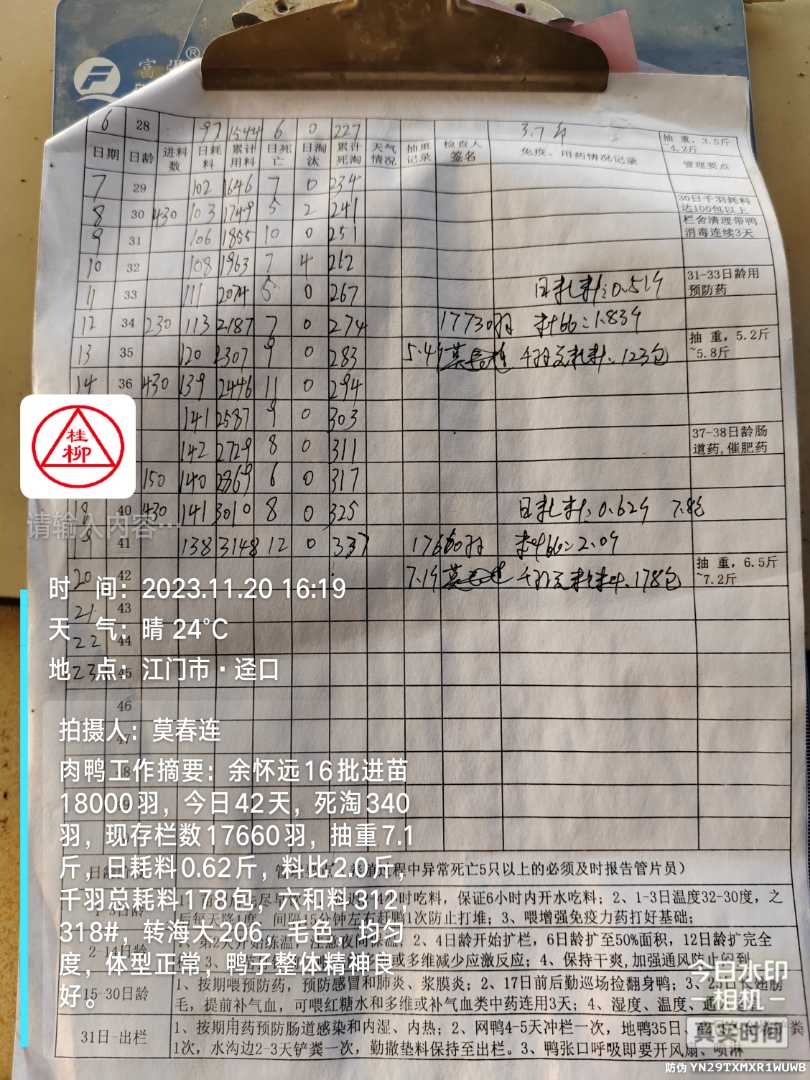 富
6 28 97 1544 6 0 227 3.7斤 抽重,3.5斤~4.2斤
日期 日龄 进料数 日耗料 累计用料 日死亡 日淘汰 累计死淘 天气情况 抽重记录 检查人签名 免疫、用药情况记录 管理要点
7 29 102 1646 7 0 234
8 30 430 103 1749 5 2 241 30日千羽耗料达100包以上
9 31 106 1855 10 0 251 栏舍清理带鸭消毒连续3天
10 32 108 1963 7 4 262
11 33 111 2074 5 0 267 日耗料:0.51斤 31-33日龄用预防药
12 34 230 113 2187 7 0 274 17730羽 料比=1.83斤
13 35 120 2307 9 0 283 5.4斤 莫春连 千羽总耗料:123包 抽重,5.2斤~5.8斤
14 36 430 139 2446 11 0 294
141 2587 9 0 303
142 2729 8 0 311 37-38日龄肠道药,催肥药
150 140 2869 6 0 317
18 40 430 141 3010 8 0 325 日耗料:0.62斤
19 41 138 3148 12 0 337 17660羽 料比=2.0斤
20 42 7.1斤 莫春连 千羽总耗料:178包 抽重,6.5斤~7.2斤
21 43
22 44
23 45
46
47
桂柳
请输入内容…
时 间:2023.11.20 16:19
天 气:晴 24℃
地 点:江门市·迳口
拍摄人:莫春连
肉鸭工作摘要:余怀远16批进苗
18000羽,今日42天,死淘340
羽,现存栏数17660羽,抽重7.1
斤,日耗料0.62斤,料比2.0斤,
千羽总耗料178包,六和料312,
318#,转海大206,毛色,均匀
度,体型正常,鸭子整体精神良
好。
程中异常死亡5只以上的必须及时报告管片员)
时吃料,保证6小时内开水吃料;2、1-3日温度32-30度,之
后每天降1度,间隔15分钟左右赶鸭1次防止打堆;3、喂增强免疫力药打好基础;
2-14日龄 2、4日龄开始扩栏,6日龄扩至50%面积,12日龄扩完全
或多维减少应激反应;4、保持干爽,加强通风防止闷到
15-30日龄 1、按期喂预防药,预防感冒和肺炎、浆膜炎;2、17日前后勤巡场捡翻身鸭;3、
毛,提前补气血,可喂红糖水和多维或补气血类中药连用3天;4、湿度、温度、通
31日-出栏 1、按期用药预防肠道感染和内湿、内热;2、网鸭4-5天冲栏一次,地鸭35日、
1次,水沟边2-3天铲粪一次,勤撒垫料保持至出栏。3、鸭张口呼吸即要开风扇、喷淋
今日水印
相机
真实时间
防伪 YN29TXMXR1WUWB